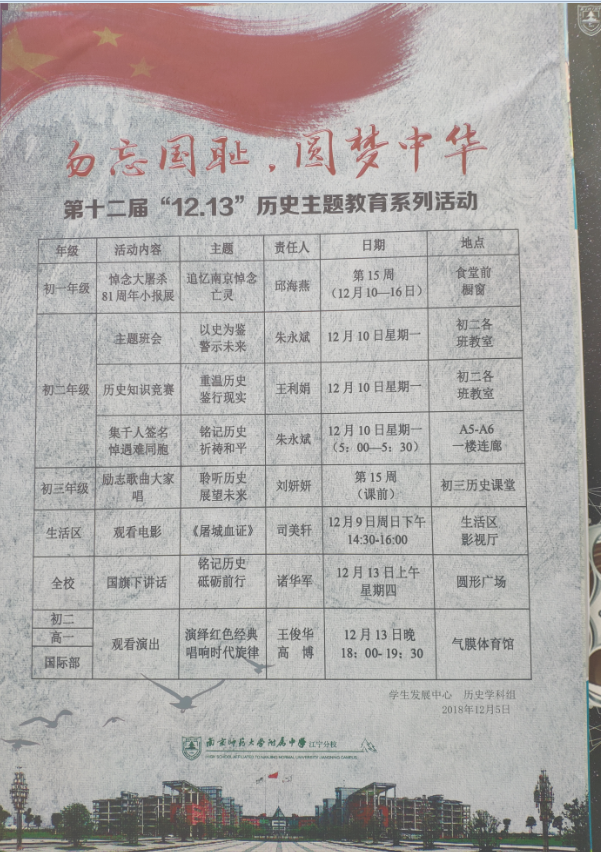 勿忘国耻，圆梦中华
第十二届“12.13”历史主题教育系列活动
年级 活动内容 主题 责任人 日期 地点
初一年级 悼念大屠杀 81周年小报展 追忆南京悼念亡灵 邱海燕 第15周 （12月10—16日） 食堂前 橱窗
初二年级 主题班会 以史为鉴 警示未来 朱永斌 12月10日星期一 初二各 班教室
历史知识竞赛 重温历史 鉴行现实 王利娟 12月10日星期一 初二各 班教室
集千人签名 悼遇难同胞 铭记历史 祈祷和平 朱永斌 12月10日星期一 （5：00—5：30） A5-A6 一楼连廊
初三年级 励志歌曲大家唱 聆听历史 展望未来 刘妍妍 第15周 （课前） 初三历史课堂
生活区 观看电影 《屠城血证》 司美轩 12月9日周日下午 14:30-16:00 生活区 影视厅
全校 国旗下讲话 铭记历史 砥砺前行 诸华军 12月13日上午 星期四 圆形广场
初二 高一 国际部 观看演出 演绎红色经典 唱响时代旋律 王俊华 高 博 12月13日晚 18：00-19：30 气膜体育馆
学生发展中心 历史学科组
2018年12月5日
南京师范大学附属中学江宁分校